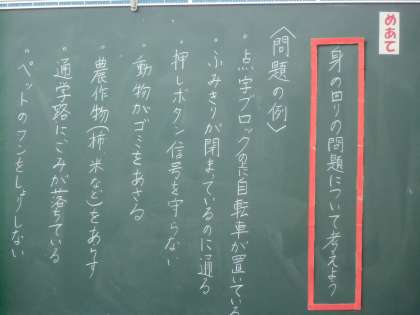 めあて
身の回りの問題について考えよう
〈問題の例〉
・点字ブロックの上に自転車が置いている
・ふみきりが閉まっているのに通る
・押しボタン信号を守らない
・動物がゴミをあさる
・農作物(柿、米など)をあらす
・通学路にごみが落ちている
・ペットのフンをしょりしない